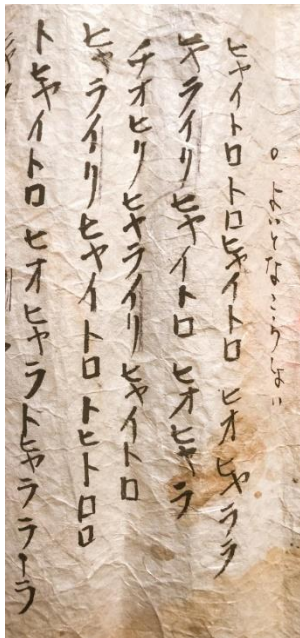 ○よいとなこらしょい
ヒヤイトロトロヒヤイトロ ヒオヒヤララ
ヒヤライリヒヤイトロ ヒオヒヤラ
チオヒリヒヤライリヒヤイトロ
ヒヤライリヒヤイトロトヒトロロ
トヒヤイトロ ヒオヒヤラトヒヤララーラ